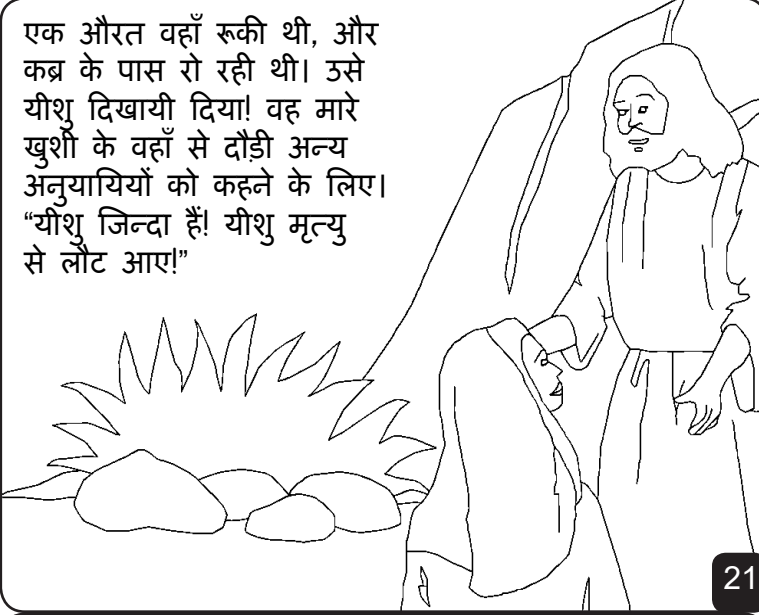 एक औरत वहाँ रूकी थी, और
कब्र के पास रो रही थी। उसे
यीशु दिखायी दिया! वह मारे
खुशी के वहाँ से दौड़ी अन्य
अनुयायियों को कहने के लिए।
“यीशु जिन्दा हैं! यीशु मृत्यु
से लौट आए!”
21